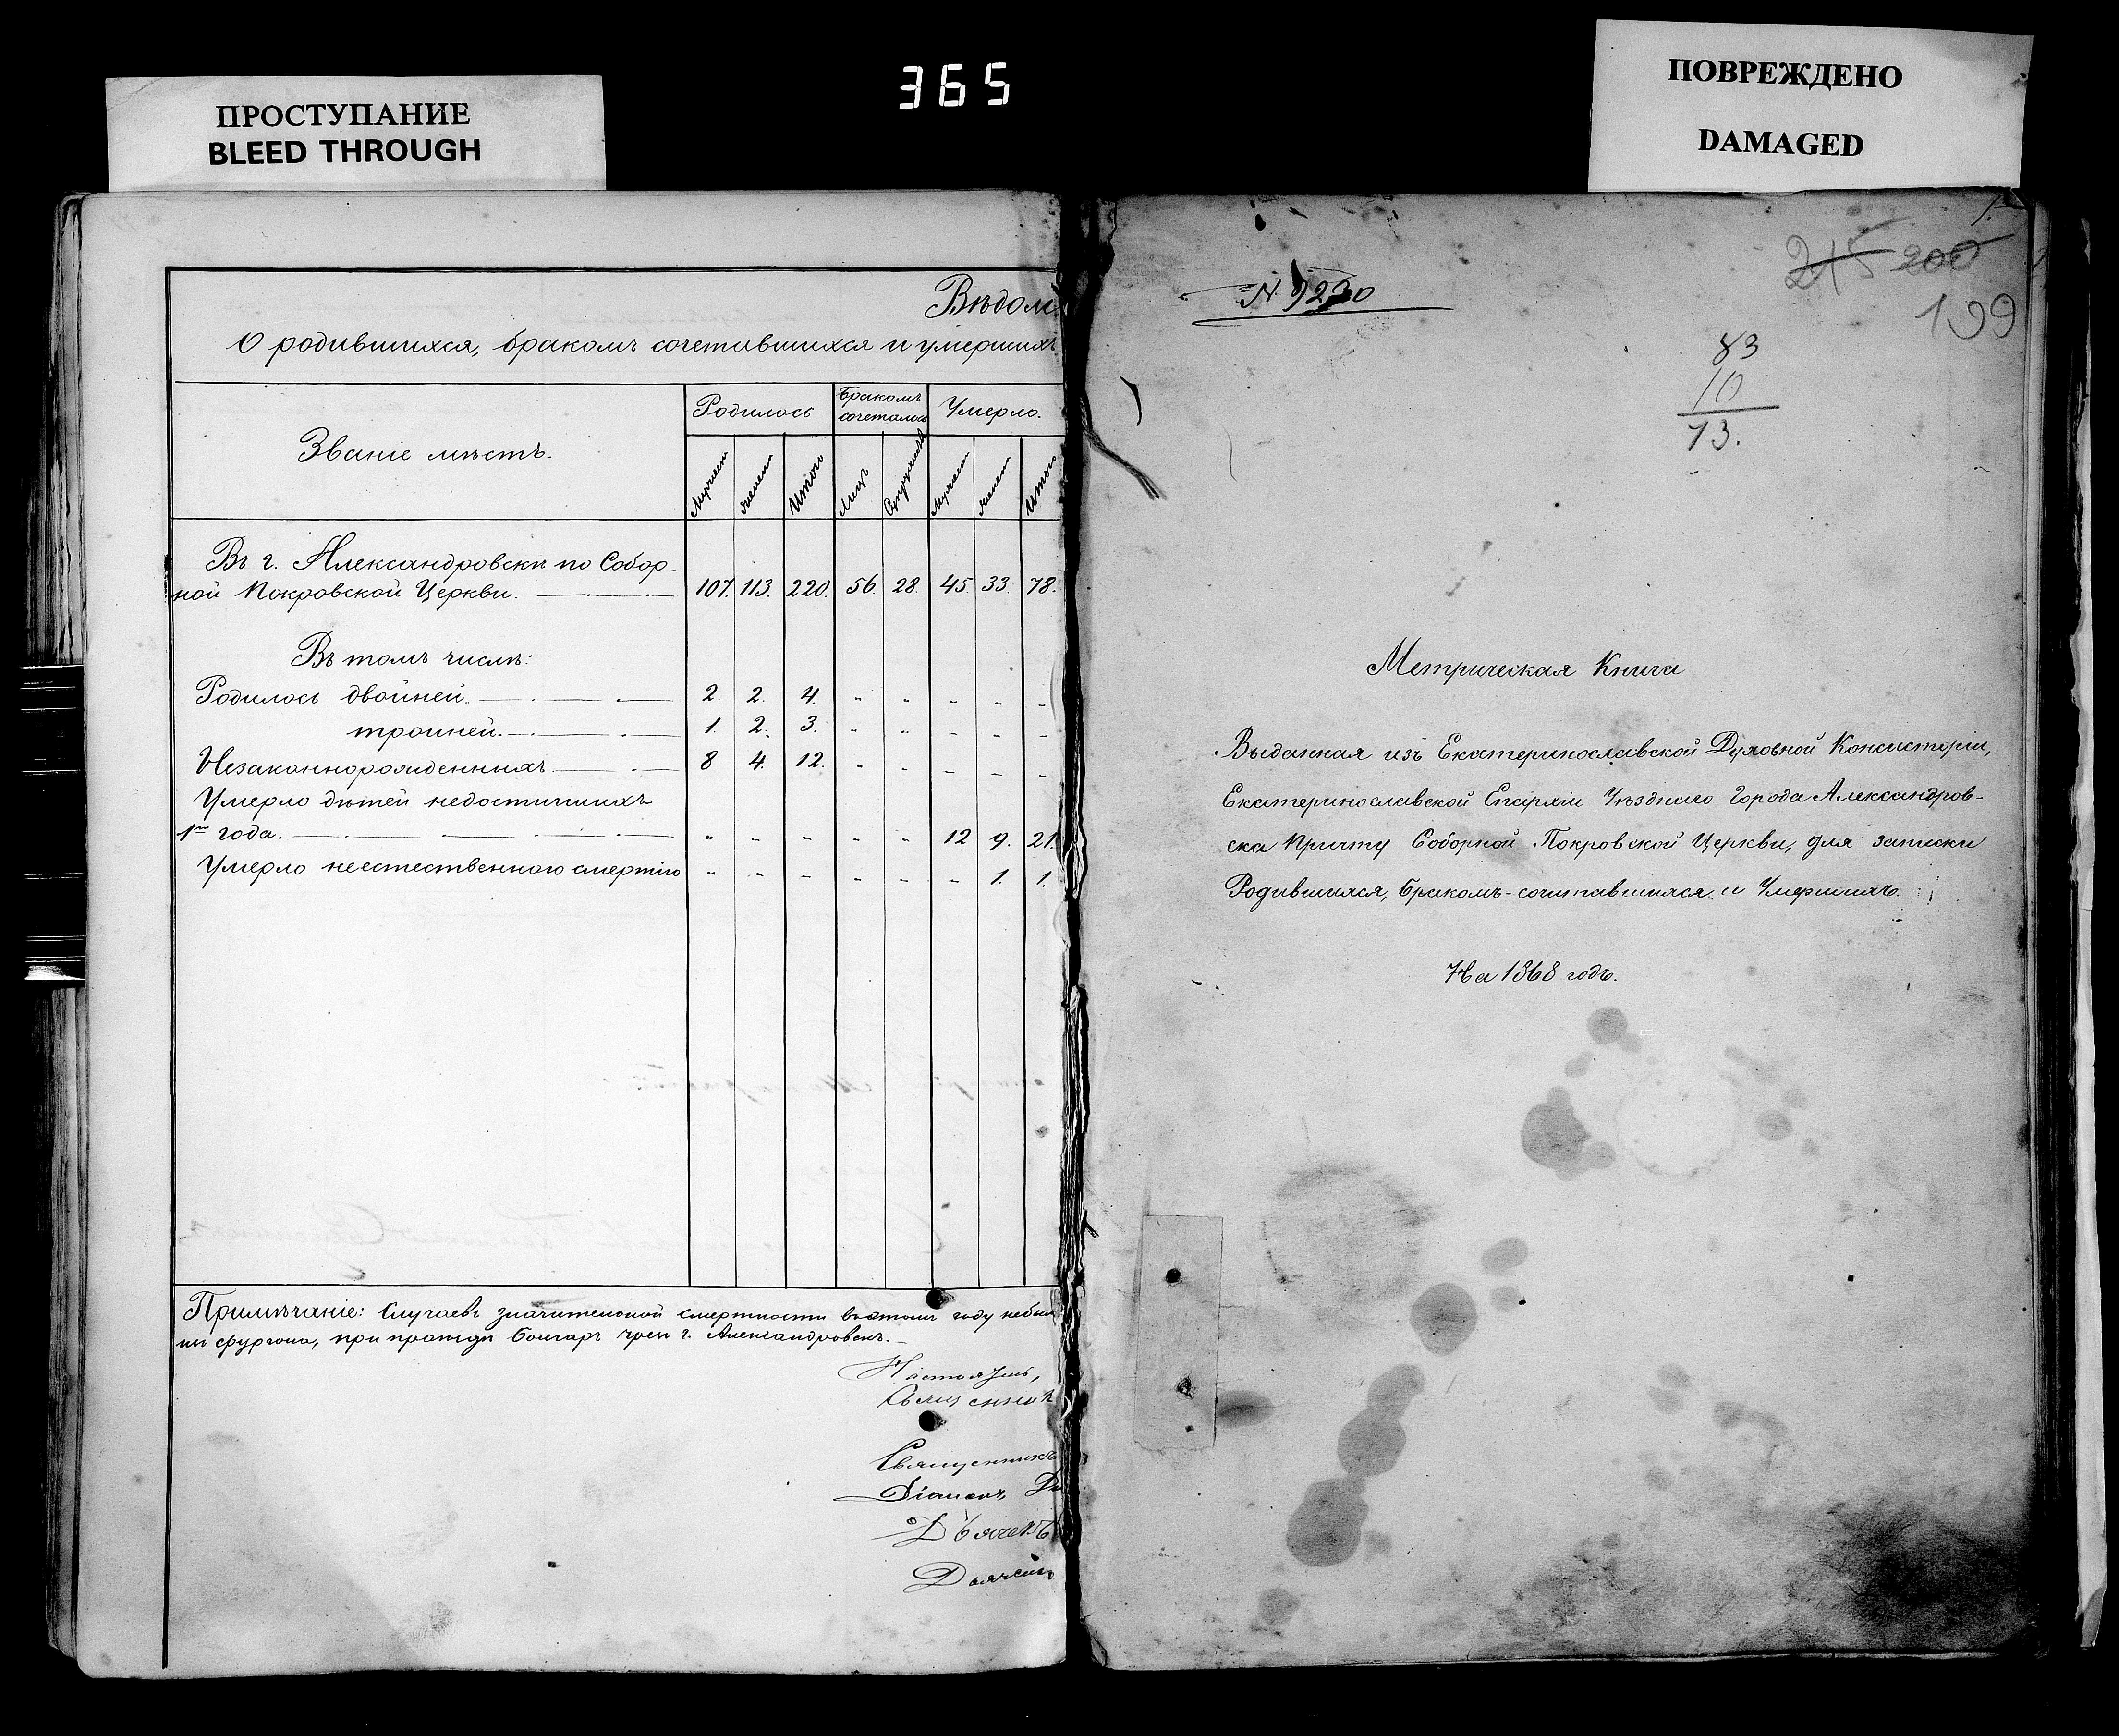 ПРОСТУПАНИЕ
BLEED THROUGH
365
ПОВРЕЖДЕНО
DAMAGED
Вѣдом
О родившихся, бракомъ сочетавшихся и умершихъ
Званіе мѣстъ.
Родилось
Бракомъ сочеталось
Умерло.
Мужеск
женск
Итого
Лицъ
Супружествъ
Мужеск
женск
Итого
Въ г. Александровскѣ по Собор-
ной Покровской Церкви. 107. 113. 220. 56. 28. 45. 33. 78.
Въ томъ числѣ:
Родилось двойней. 2. 2. 4. " " " " "
тройней. 1. 2. 3. " " " " "
Незаконнорожденныхъ 8 4. 12. " " " " "
Умерло дѣтей недостигшихъ
1го года. " " " " " 12 9. 21.
Умерло неестественною смертію " " " " " " 1. 1.
Примѣчаніе: Случаевъ значительной смертности въ этомъ году небыл
Болгаръ чрез г. Александровскъ.
Настоятель,
Священник
Священникъ
Діаконъ,
Дьячекъ
Дьячекъ
1.
N. 9230
215 200
199
83
10
73.
Метрическая Книга
Выданная изъ Екатеринославской Духовной Консисторіи,
Екатеринославской Епархіи Уѣзднаго Города Александров-
ска Причту Соборной Покровской Церкви, для записки
Родившихся, бракомъ-сочитавшихся и Умершихъ.
На 1868 годъ.